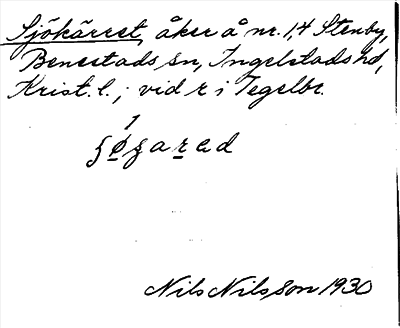 Sjökärret, åker å nr. 1, 4 Stenby,
Benestads sn, Ingelstads hd,
Krist. l.; vid r i Tegelbr.
Nils Nilsson 1930